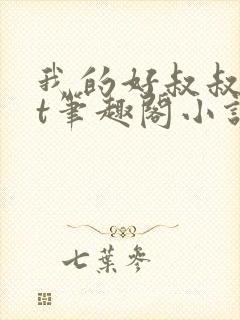 我的好叔叔
t筆趣閣小說
七葉參